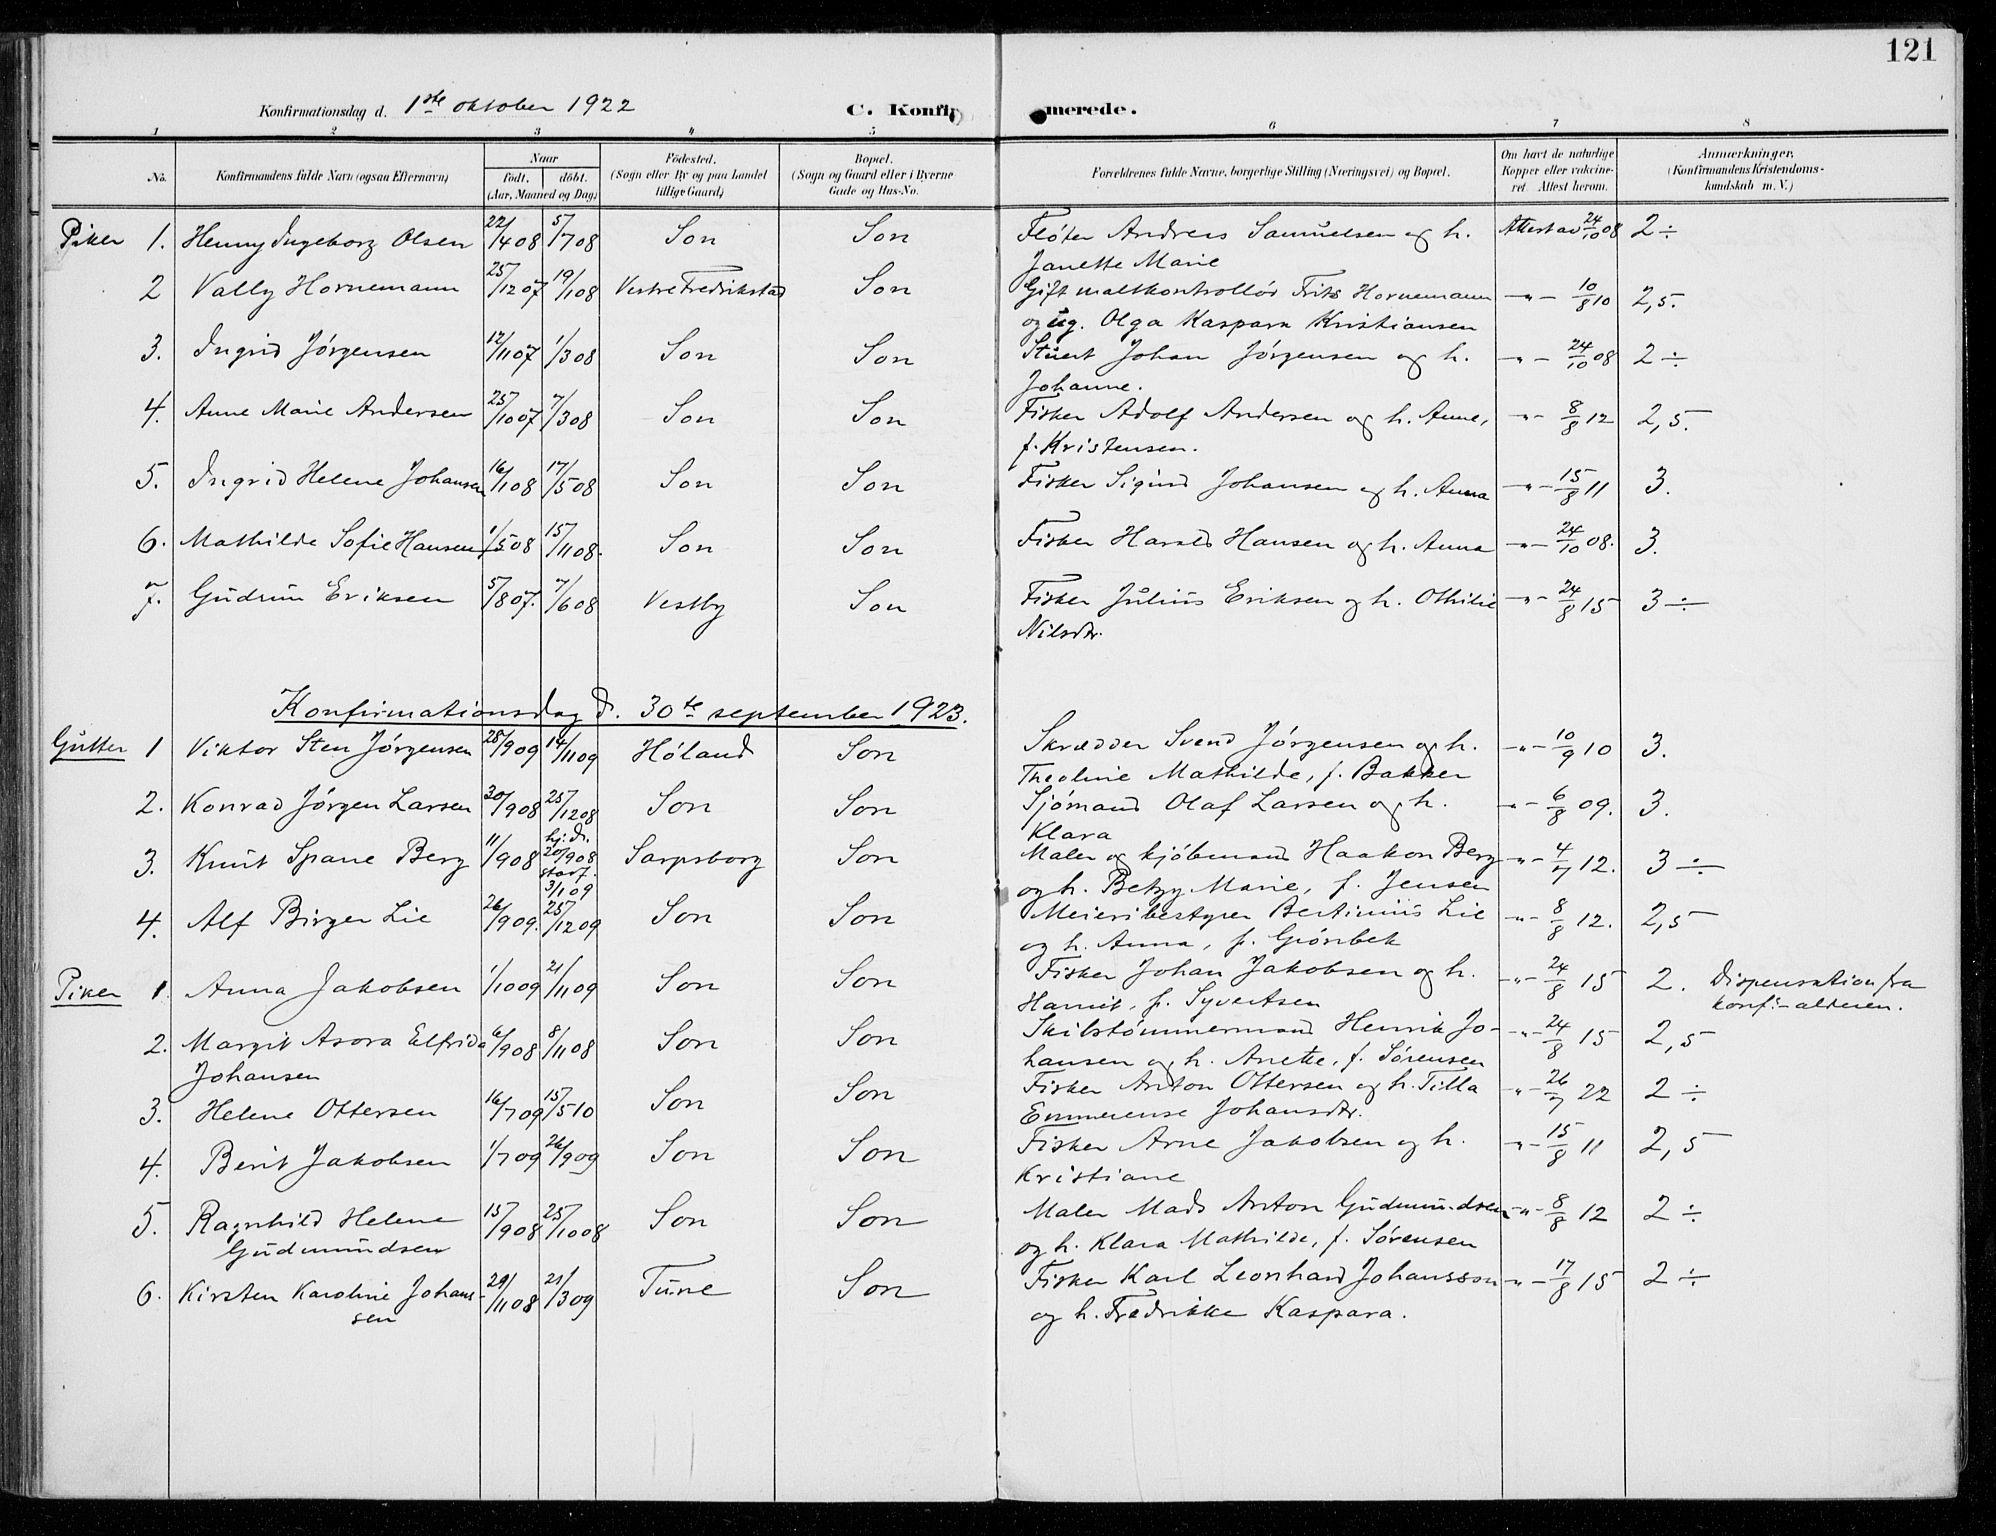 121
Konfirmationsdag d. 1ste oktober 1922 C. Konfir merede.
1 2 3 4 5 6 7 8
No. Konfirmandens fulde Navn (ogsaa Efternavn) Naar Födested. Bopæl. Forældrenes fulde Navne, borgerlige Stilling (Næringsvei) og Bopæl. Om havt de naturlige Anmærkninger.
födt. döbt. (Sogn eller By og paa Landet (Sogn og Gaard eller i Byerne Kopper eller vakcine- (Konfirmandens Kristendoms-
(Aar, Maaned og Dag) tillige Gaard) Gade og Hus-No. ret. Attest herom. kundskab m. V.)
Piker 1. Henny Ingeborg Olsen 22/4 08 5/7 08 Son Son Fløter Andreas Samuelsen og h. Attest av 24/10 08 2 ÷
Janette Marie
2 Vally Hornemann 25/12 07 19/1 08 Vestre Fredrikstad Son Gift maltkontrollør Frits Hornemann -"- 10/8 10 2,5.
og ug. Olga Kaspara Kristiansen
3. Ingrid Jørgensen 12/11 07 1/3 08 Son Son Stuert Johan Jørgensen og h. -"- 24/10 08 2 ÷
Johanne.
4. Anne Marie Andersen 25/10 07 7/3 08 Son Son Fisker Adolf Andersen og h. Anne, -"- 8/8 12 2,5.
f. Kristensen.
5. Ingrid Helene Johansen 16/1 08 17/5 08 Son Son Fisker Sigurd Johansen og h. Anna -"- 15/8 11 3.
6. Mathilde Sofie Hansen 1/5 08 15/11 08. Son Son Fisker Harald Hansen og h. Anna -"- 24/10 08. 3.
7. Gudrun Eriksen 5/8 07. 7/6 08 Vestby Son Fisker Julius Eriksen og h. Othilie -"- 24/8 15 3 ÷
Nilsdtr.
Konfirmationsdag d. 30te september 1923.
Gutter 1 Viktor Sten Jørgensen 28/9 09 14/11 09 Høland Son Skrædder Svend Jørgensen og h. -"- 10/9 10 3.
Theoline Mathilde, f. Bakker
2. Konrad Jørgen Larsen 30/9 08 25/12 08 Son Son Sjømand Olaf Larsen og h. -"- 6/8 09. 3.
Klara
3. Knut Spane Berg 11/9 08 hj. d. 20/9 08 stadf. 3/1 09 Sarpsborg Son Maler og kjøbmand Haakon Berg -"- 4/7 12. 3 ÷
og h. Betzy Marie, f. Jensen
4. Alf Birger Lie 26/9 09. 25/12 09 Son Son Meieribestyrer Bertinius Lie -"- 8/8 12. 2,5
og h. Anna, f. Grønbek
Piker 1 Anna Jakobsen 1/10 09 21/11 09 Son Son Fisker Johan Jakobsen og h. -"- 24/8 15 2. Dispensation fra
Harriet, f. Syvertsen konf:- alderen.
2. Margit Asora Elfrida 6/9 08 8/11 08 Son Son Skibstømmermand Henrik Jo- -"- 24/8 15 2,5
Johansen hansen og h. Anette, f. Sørensen
3. Helene Ottersen 16/7 09 15/5 10 Son Son Fisker Anton Ottersen og h. Tilla -"- 26/7 22 2 ÷
Emmerense Johansdtr.
4. Berit Jakobsen 1/7 09 26/9 09 Son Son Fisker Arne Jakobsen og h. -"- 15/8 11 2,5
Kristiane
5. Ragnhild Helene 15/9 08 25/10 08 Son Son Maler Mads Anton Gudmundsen -"- 8/8 12 2 ÷
Gudmundsen og h. Klara Mathilde, f. Sørensen
6. Kirsten Karoline Johans- 29/11 08 21/3 09 Tune Son Fisker Karl Leonhard Johansson -"- 17/8 15 2 ÷
sen og h. Fredrikke Kaspara.